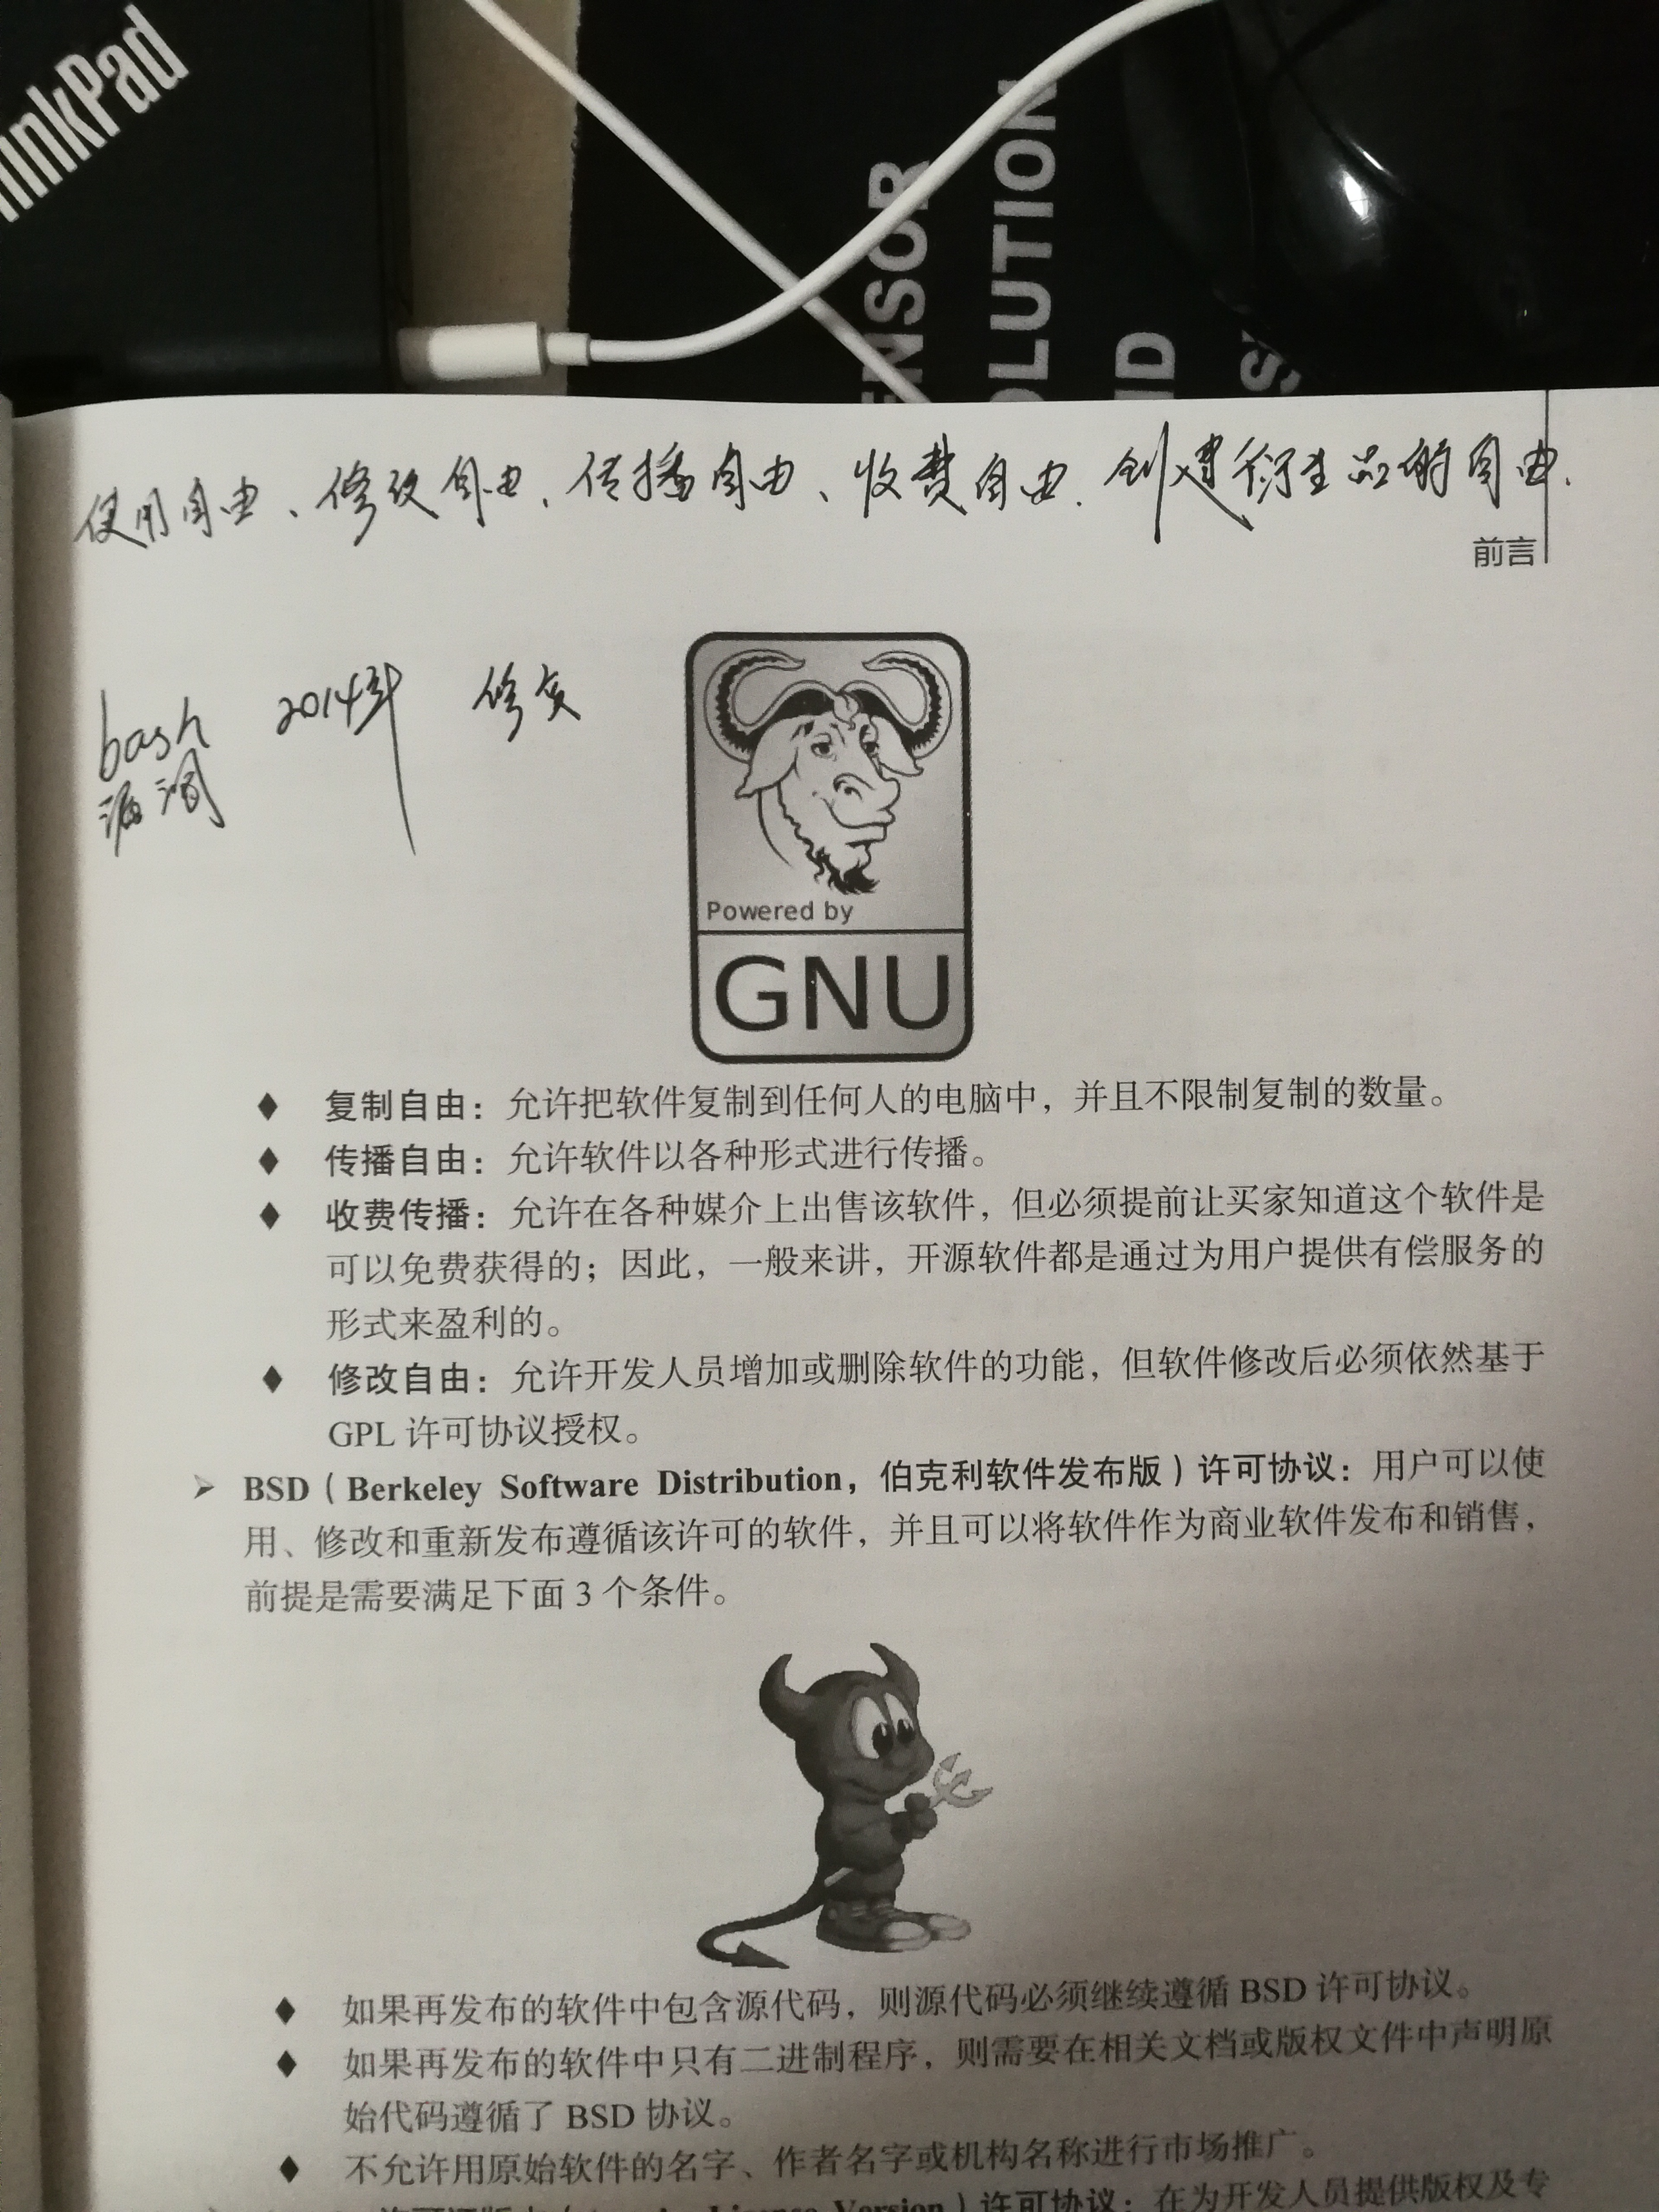 inkPad
ENSOR
OLUTION
ND
使用自由、修改自由、传播自由、收费自由、创建衍生品的自由.
前言
bash 2014年 修复
漏洞
Powered by
GNU
◆ 复制自由：允许把软件复制到任何人的电脑中，并且不限制复制的数量。
◆ 传播自由：允许软件以各种形式进行传播。
◆ 收费传播：允许在各种媒介上出售该软件，但必须提前让买家知道这个软件是
可以免费获得的；因此，一般来讲，开源软件都是通过为用户提供有偿服务的
形式来盈利的。
◆ 修改自由：允许开发人员增加或删除软件的功能，但软件修改后必须依然基于
GPL 许可协议授权。
➢ BSD（Berkeley Software Distribution，伯克利软件发布版）许可协议：用户可以使
用、修改和重新发布遵循该许可的软件，并且可以将软件作为商业软件发布和销售，
前提是需要满足下面 3 个条件。
◆ 如果再发布的软件中包含源代码，则源代码必须继续遵循 BSD 许可协议。
◆ 如果再发布的软件中只有二进制程序，则需要在相关文档或版权文件中声明原
始代码遵循了 BSD 协议。
◆ 不允许用原始软件的名字、作者名字或机构名称进行市场推广。
License Version）许可协议：在为开发人员提供版权及专